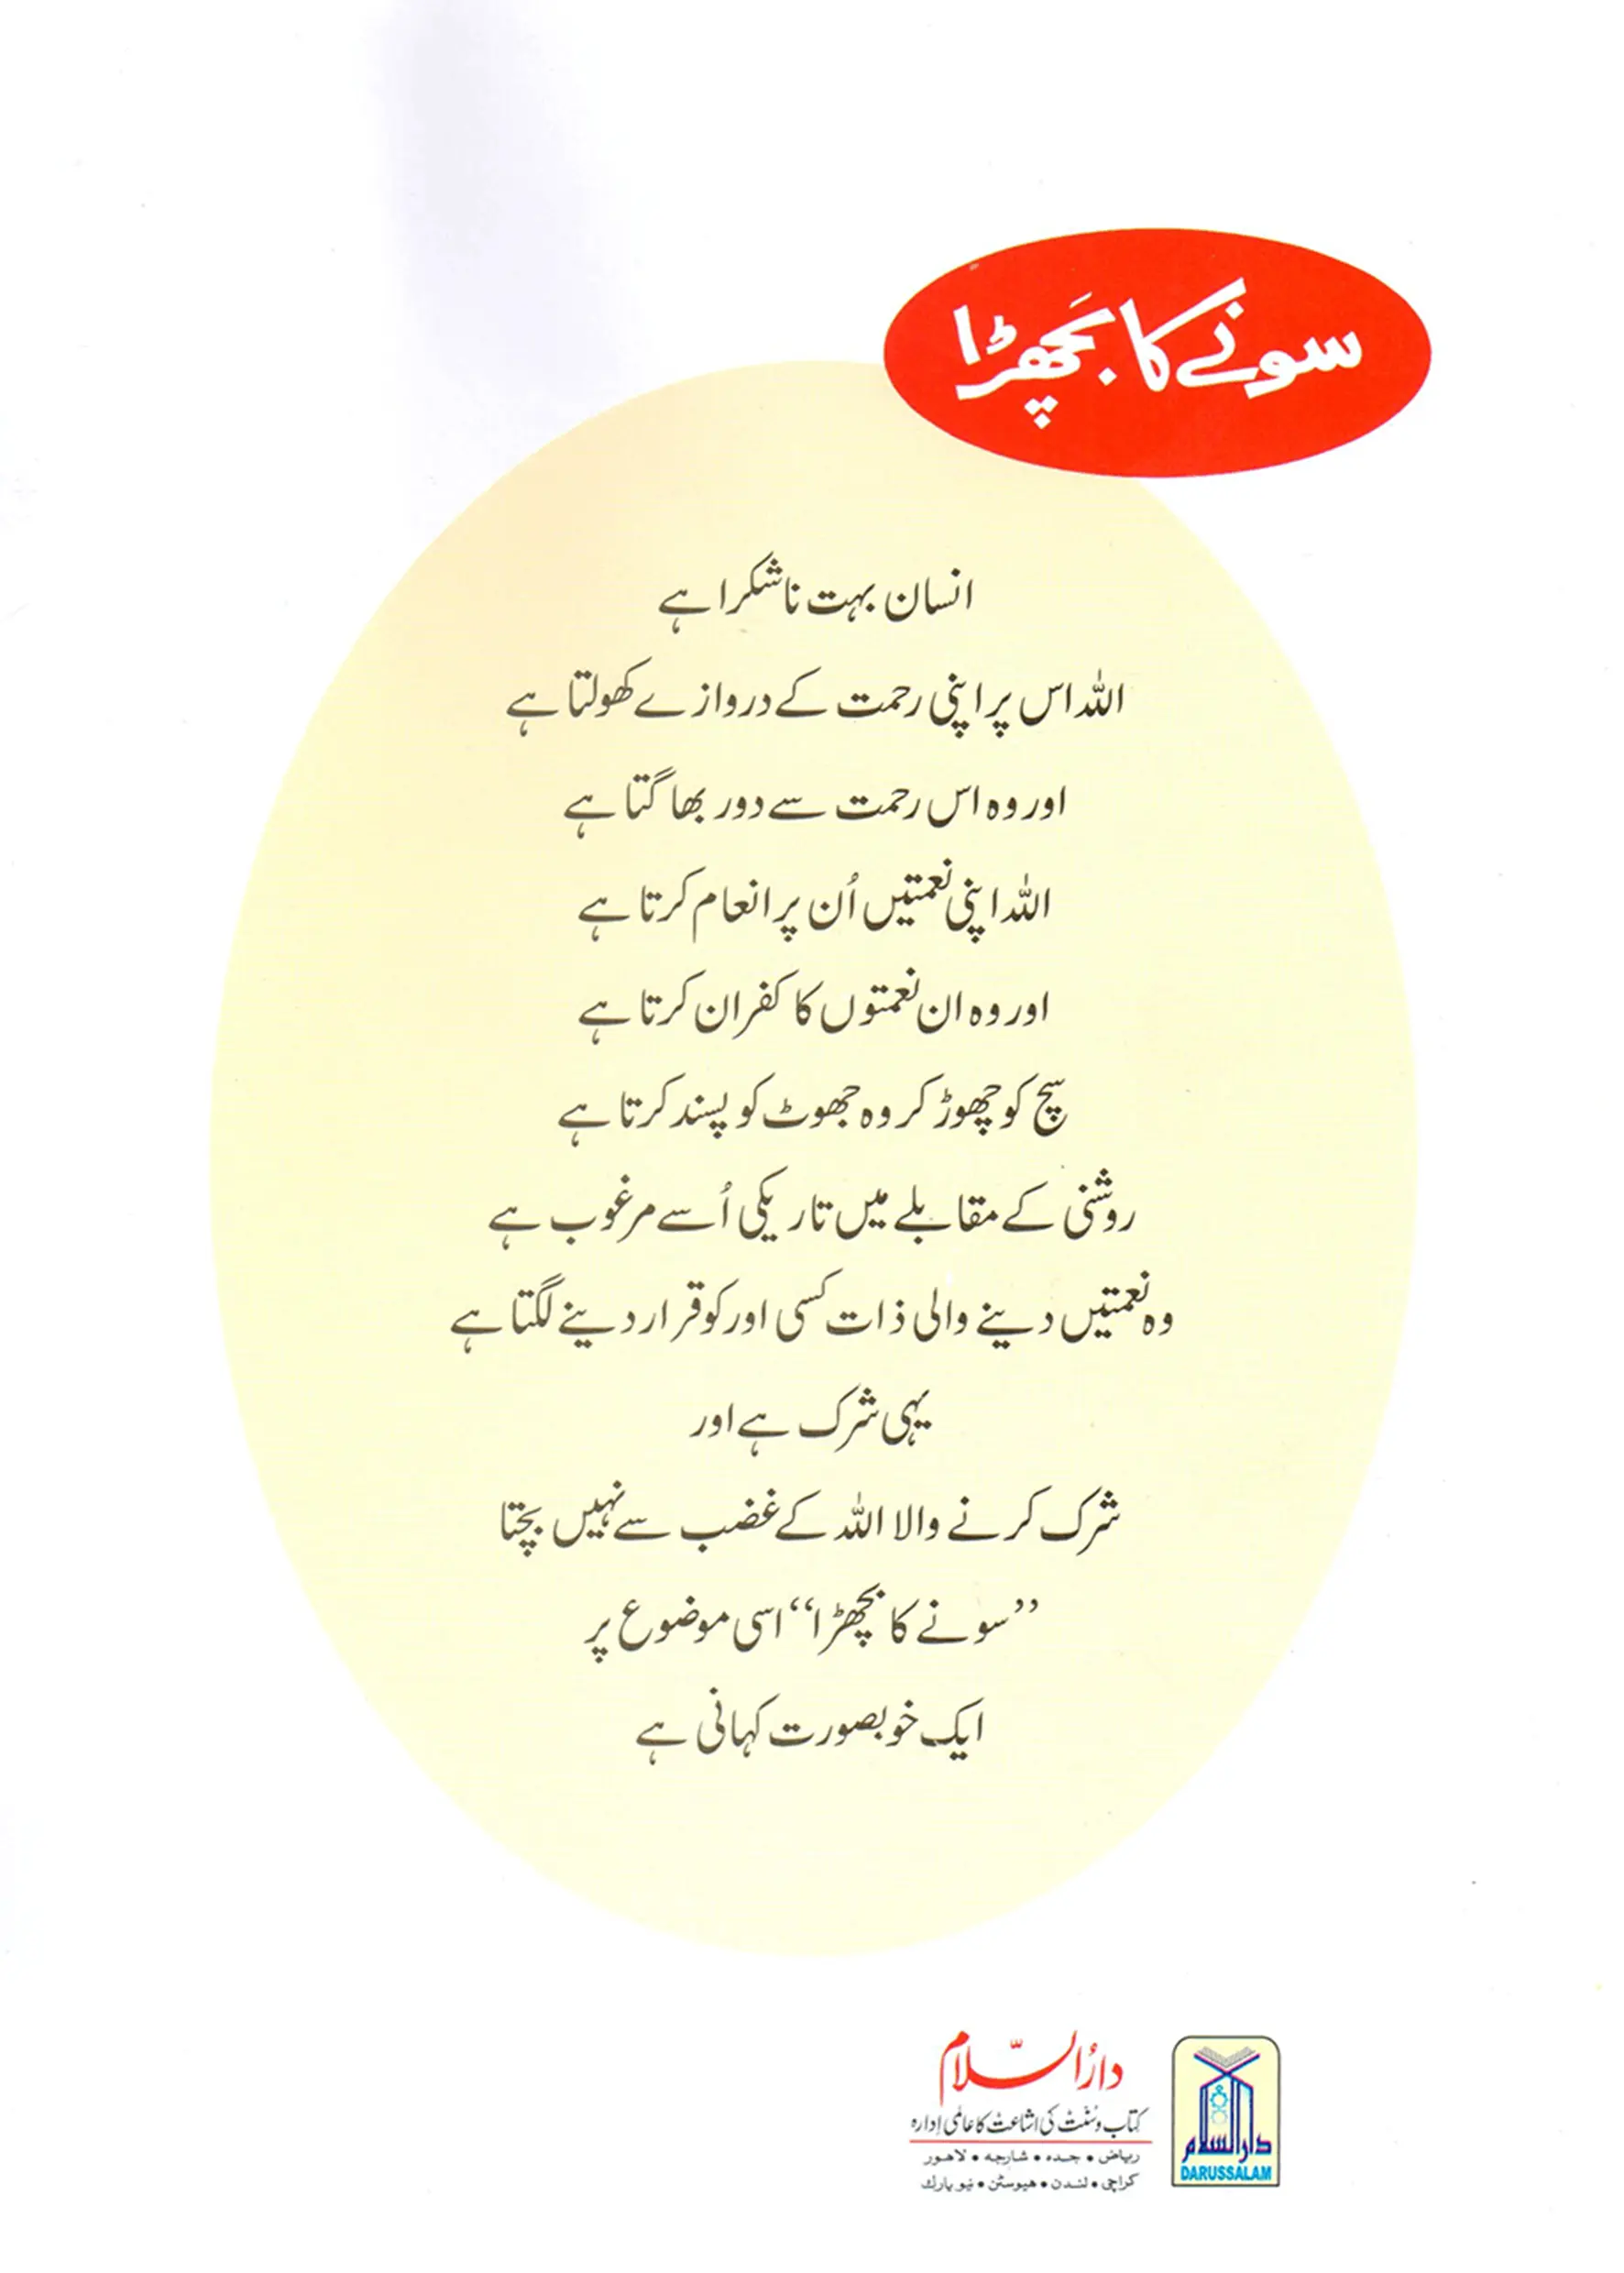 سونے کا بچھڑا
انسان بہت ناشکرا ہے
اللہ اس پر اپنی رحمت کے دروازے کھولتا ہے
اور وہ اس رحمت سے دور بھاگتا ہے
اللہ اپنی نعمتیں اُن پر انعام کرتا ہے
اور وہ ان نعمتوں کا کفران کرتا ہے
سچ کو چھوڑ کر وہ جھوٹ کو پسند کرتا ہے
روشنی کے مقابلے میں تاریکی اُسے مرغوب ہے
وہ نعمتیں دینے والی ذات کسی اور کو قرار دینے لگتا ہے
یہی شرک ہے اور
شرک کرنے والا اللہ کے غضب سے نہیں بچتا
”سونے کا بچھڑا“ اسی موضوع پر
ایک خوبصورت کہانی ہے
دارُالسّلام
کتاب و سنت کی اشاعت کا عالمی ادارہ
ریاض • جدہ • شارجہ • لاہور
کراچی • لندن • ہیوسٹن • نیو یارک
دارالسلام
DARUSSALAM